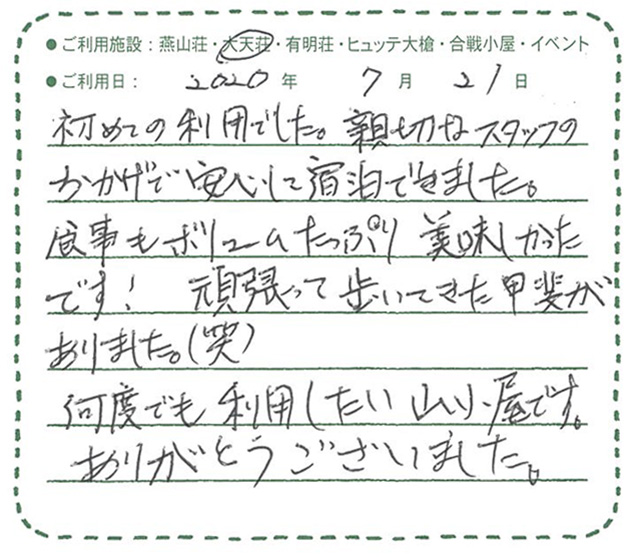 ●ご利用施設：燕山荘・大天荘・有明荘・ヒュッテ大槍・合戦小屋・イベント
●ご利用日： 2020 年 7 月 21 日
初めての利用でした。親切なスタッフの
おかげで安心して宿泊できました。
食事もボリュームたっぷり美味しかった
です！ 頑張って歩いてきた甲斐が
ありました。(笑)
何度でも利用したい山小屋です。
ありがとうございました。